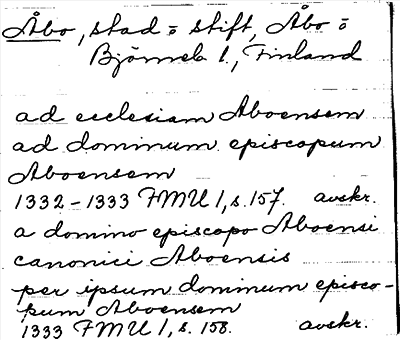 Åbo, stad o stift, Åbo o
Björneb l., Finland
ad ecclesiam Aboensem
ad dominum episcopum
Aboensem
1332-1333 FMU 1, s. 157. avskr.
a domino episcopo Aboensi
canonici Aboensis
per ipsum dominum episco-
pum Aboensem
1333 FMU 1, s. 158. avskr.